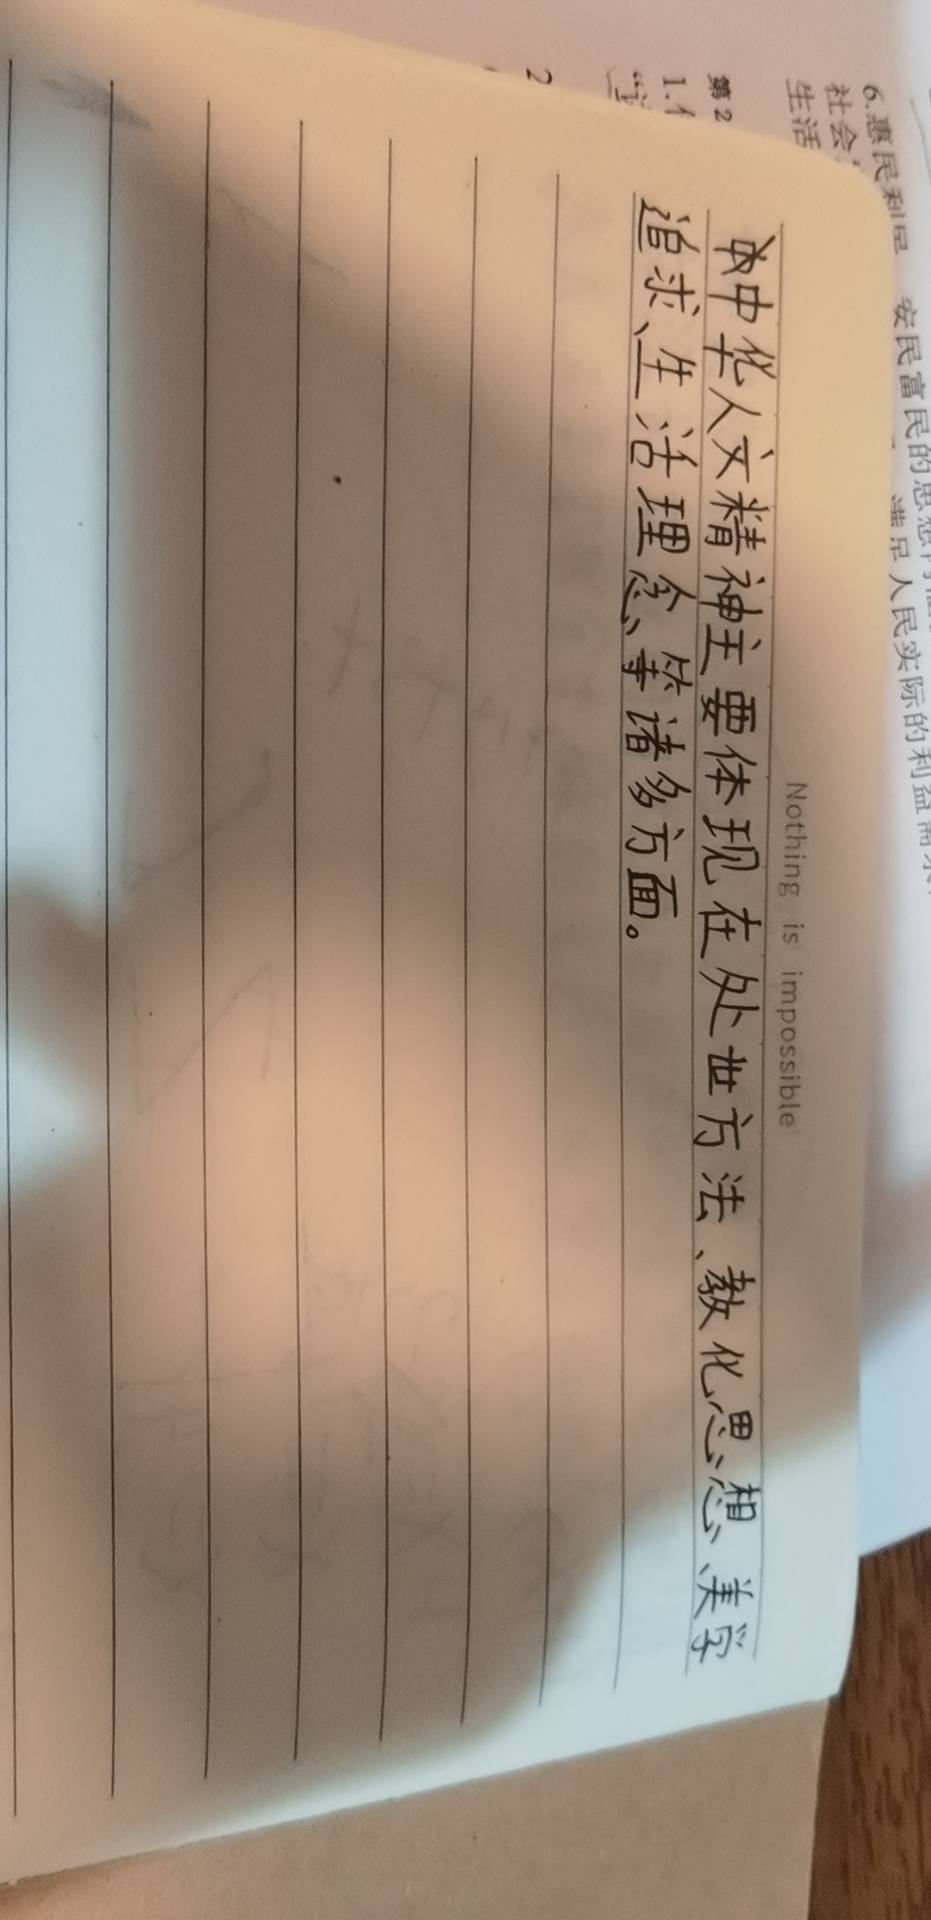 6.惠民利民 安民富民的思想
社会 满足人民实际的利益需求
生活
第2
1.
2
Nothing is impossible
中华人文精神主要体现在处世方法、教化思想、美学
追求、生活理念等诸多方面。